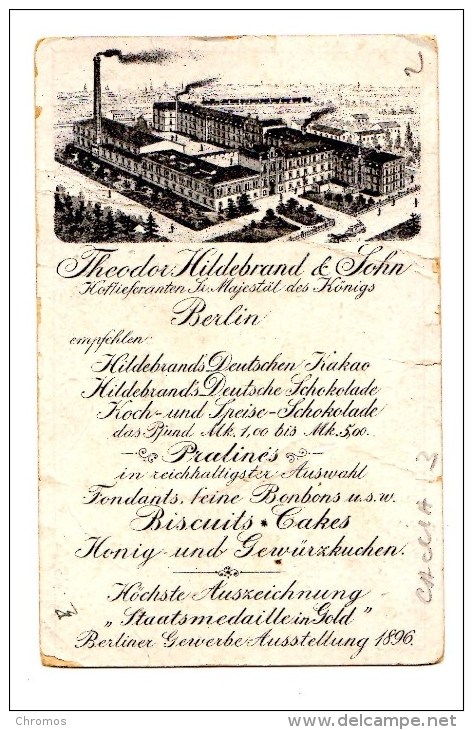 Theodor Hildebrand & Sohn
Hoflieferanten Sr. Majestät des Königs
Berlin
empfehlen:
Hildebrand's Deutschen Kakao
Hildebrand's Deutsche Schokolade
Koch- und Speise-Schokolade
das Pfund Mk. 1,00 bis Mk. 5,00.
Pralinés
in reichhaltigster Auswahl
Fondants, feine Bonbons u.s.w.
Biscuits * Cakes
Honig- und Gewürzkuchen.
Höchste Auszeichnung
„Staatsmedaille in Gold"
Berliner Gewerbe-Ausstellung 1896.
2
3
Chromos
delcampe.net